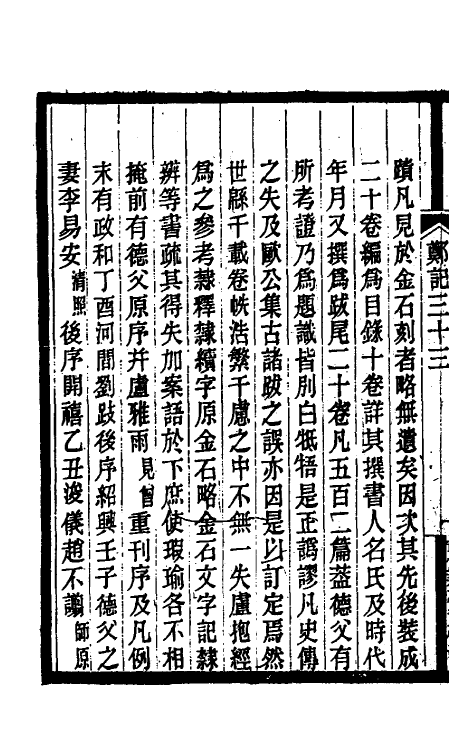 蹟凡見於金石刻者略無遺矣因次其先後裝成
二十卷編爲目錄十卷詳其撰書人名氏及時代
年月又撰爲跋尾二十卷凡五百二篇葢德父有
所考證乃爲題識皆別白牴牾是正譌謬凡史傳
之失及歐公集古諸跋之誤亦因是以訂定焉然
世緜千載卷帙浩繁千慮之中不無一失盧抱經
爲之參考隸釋隸續字原金石略金石文字記隸
辨等書疏其得失加案語於下庶使瑕瑜各不相
掩前有德父原序幷盧雅雨見曾重刊序及凡例
末有政和丁酉河間劉跂後序紹興壬子德父之
妻李易安清照後序開禧乙丑浚儀趙不譾師厚
鄭記三十三